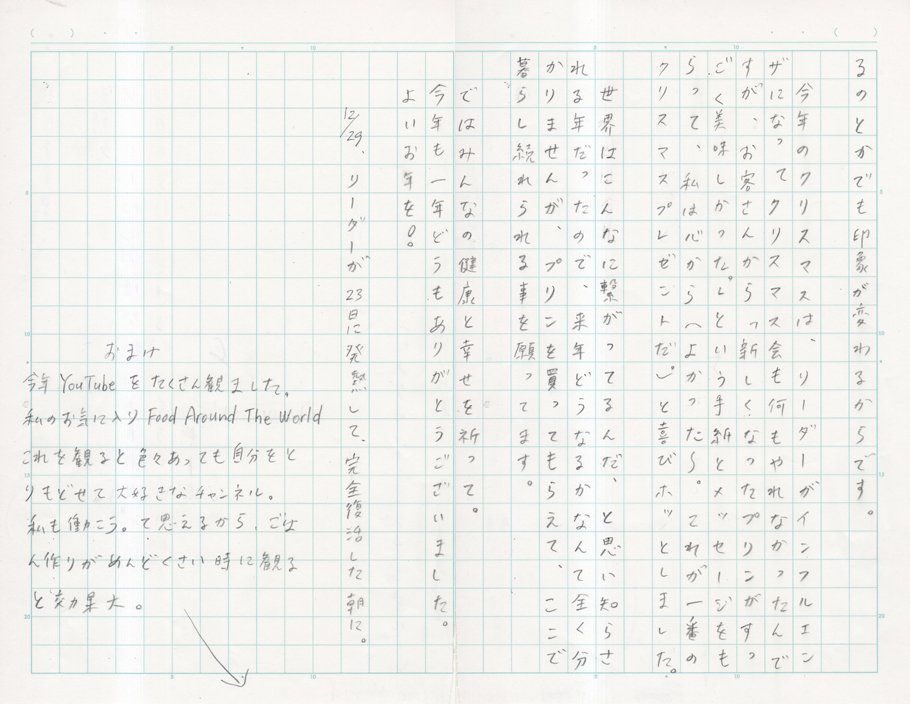 るのとかでも印象が変わるからです。
今年のクリスマスは、リーダーがインフルエン
ザになってクリスマス会も何もやれなかったんで
すが、お客さんから「新しくなったプリンがすっ
ごく美味しかった。」という手紙とメッセージをも
らって、私は心から（よかった）。それが一番の
クリスマスプレゼントだ」と喜びホッとしました。
世界はこんなに繋がってるんだと思い知らさ
れる年だったので、来年どうなるか、なんて全く分
かりませんが、プリンを買ってもらえて、ここで
暮らし続けられる事を願ってます。
ではみんなの健康と幸せを祈って。
今年も一年どうもありがとうございました。
よいお年を!。
12/29、リーダーが23日に発熱して、完全復活した朝に。
おまけ
今年YouTubeをたくさん観ました。
私のお気に入りFood Around The World
これを観ると色々あっても自分をと
りもどせて大好きなチャンネル。
私も働こう。て思えるから、ごは
ん作りがめんどくさい時に観る
と効果大。